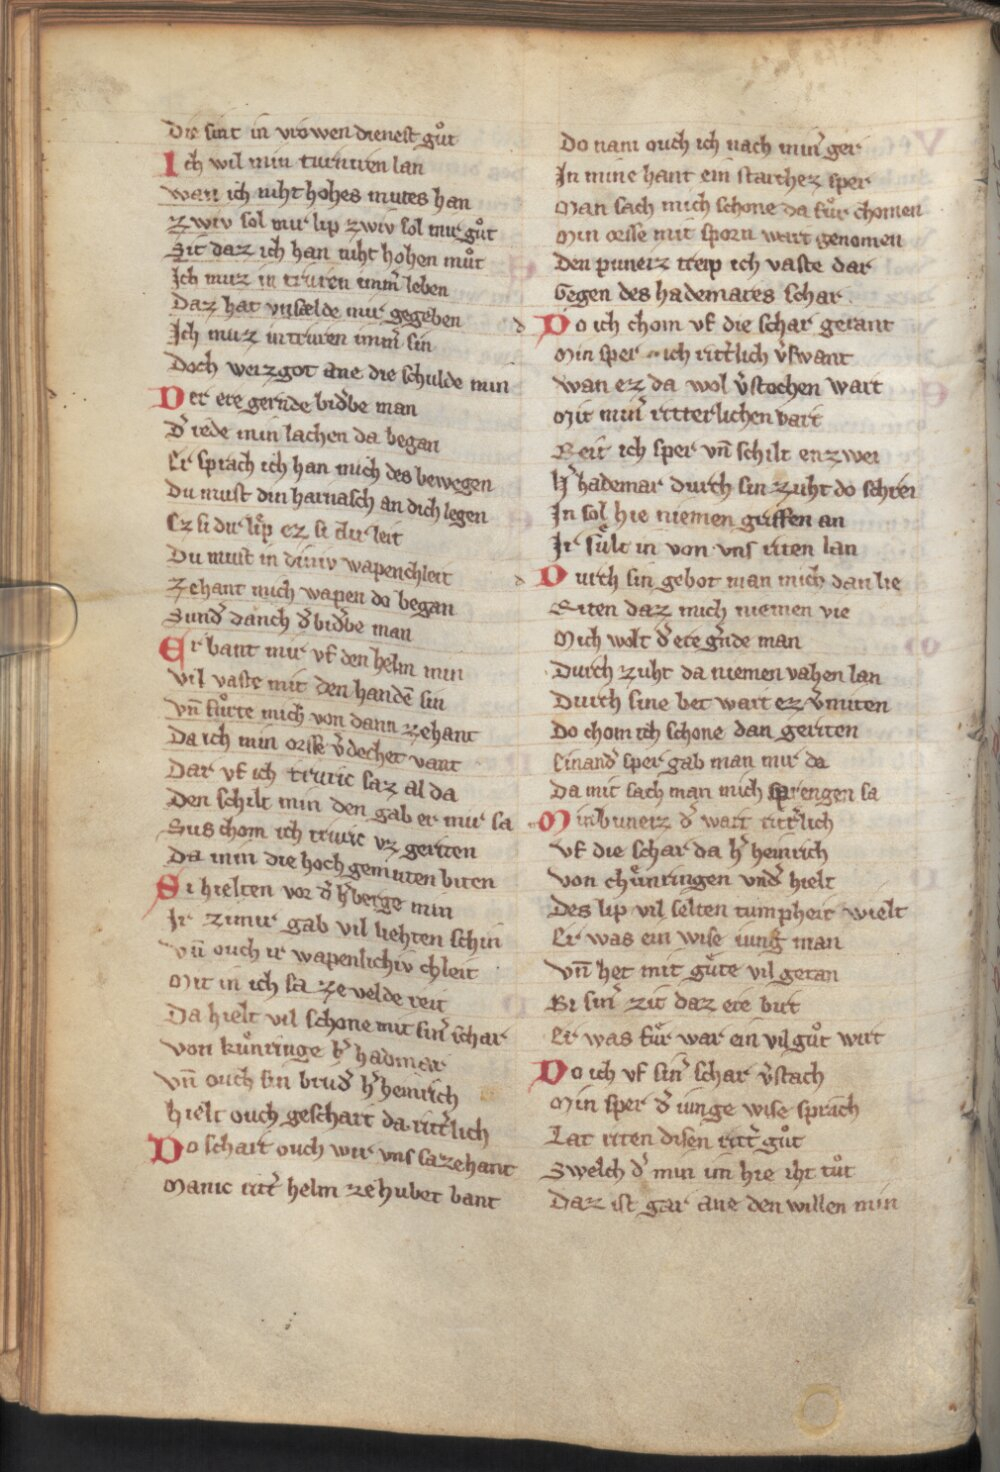 Die sint in vrowen dienest gůt
Ich wil min turniren lan
wan ich niht hohes mutes han
zwiv sol mir lip zwiv sol mir gůt
Sit daz ich han niht hohen můt
Ich muz in truren imm̃ leben
Daz hat vnsælde mir gegeben
Ich muz in truren imm̃ sin
Doch weiz got ane die schulde min
Der ere gernde bid̾be man
d̾ rede min lachen da began
Er sprach ich han mich des bewegen
Du must din harnasch an dich legen
Ez si dir liͤp ez si dir leit
Du must in diniv wapenchleit
zehant mich wapen do began
Sund̾ danch d̾ bid̾be man
Er bant mir vf den helm min
vil vaste mit den handẽ sin
vñ fůrte mich von dann zehant
Da ich min orsse v̾dechet vant
Dar vf ich truric saz al da
Den schilt min den gab er mir sa
Sus chom ich truric vz geriten
Da min die hochgemuten biten
Si hielten vor d̾ h̾berge min
Ir zimir gab vil liehten schin
vñ ouch ir wapenlichiv chleit
Mit in ich sa ze velde reit
Da hielt vil schone mit sin̾ schar
von kůnringe h̾ hadmar
vñ ouch sin brud̾ h̾ heinrich
hielt ouch geschart da ritt̾lich
Do schart ouch wir vns sazehant
Manic ritt̾ helm ze hubet bant
Do nam ouch ich nach min̾ ger
In mine hant ein starchez sper
Man sach mich schone da fůr chomen
Min orsse mit sporn wart genomen
Den puneiz treip ich vaste dar
Gegen des hademares schar
Do ich chom vf die schar gerant
Min sper ich ritt̾lich v̾swant
wan ez da wol v̾stochen wart
Mit min̾ ritterlichen vart
Reit ich sper vñ schilt enzwei
h̾ hademar durch sin zuht do schrei
In sol hie niemen griffen an
Ir sůlt in von vns riten lan
Durch sin gebot man mich dan lie
Riten daz mich niemen vie
Mich wolt d̾ ere g̾nde man
Durch zuht da niemen vahen lan
Durch sine bet wart ez v̾miten
Do chom ich schone dan geriten
Einand̾ sper gab man mir da
Da mit sach man mich sprengen sa
Min buneiz d̾ wart ritt̾lich
vf die schar da h̾ heinrich
von chůnringen vnd̾ hielt
Des lip vil selten tumpheit wielt
Er was ein wise iung man
vñ het mit gůte vil getan
Bi sin̾ zit daz ere birt
Er was fůr war ein vil gůt wirt
Do ich vf sin̾ schar v̾stach
Min sper d̾ iunge wise sprach
Lat riten disen ritt̾ gůt
Swelch d̾ min im hie iht tůt
Daz ist gar ane den willen min